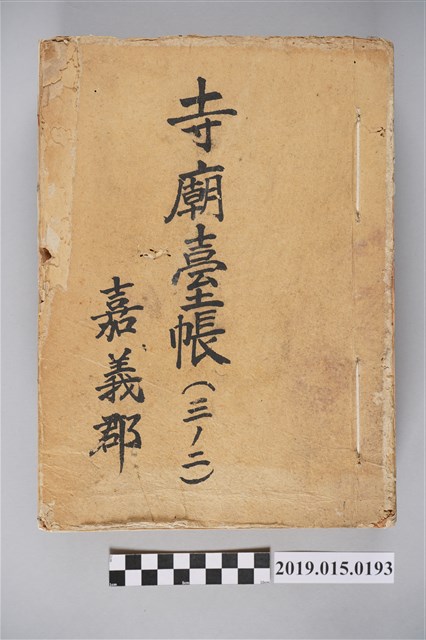 寺廟臺帳(三ノ二)
嘉義郡
2019.015.0193